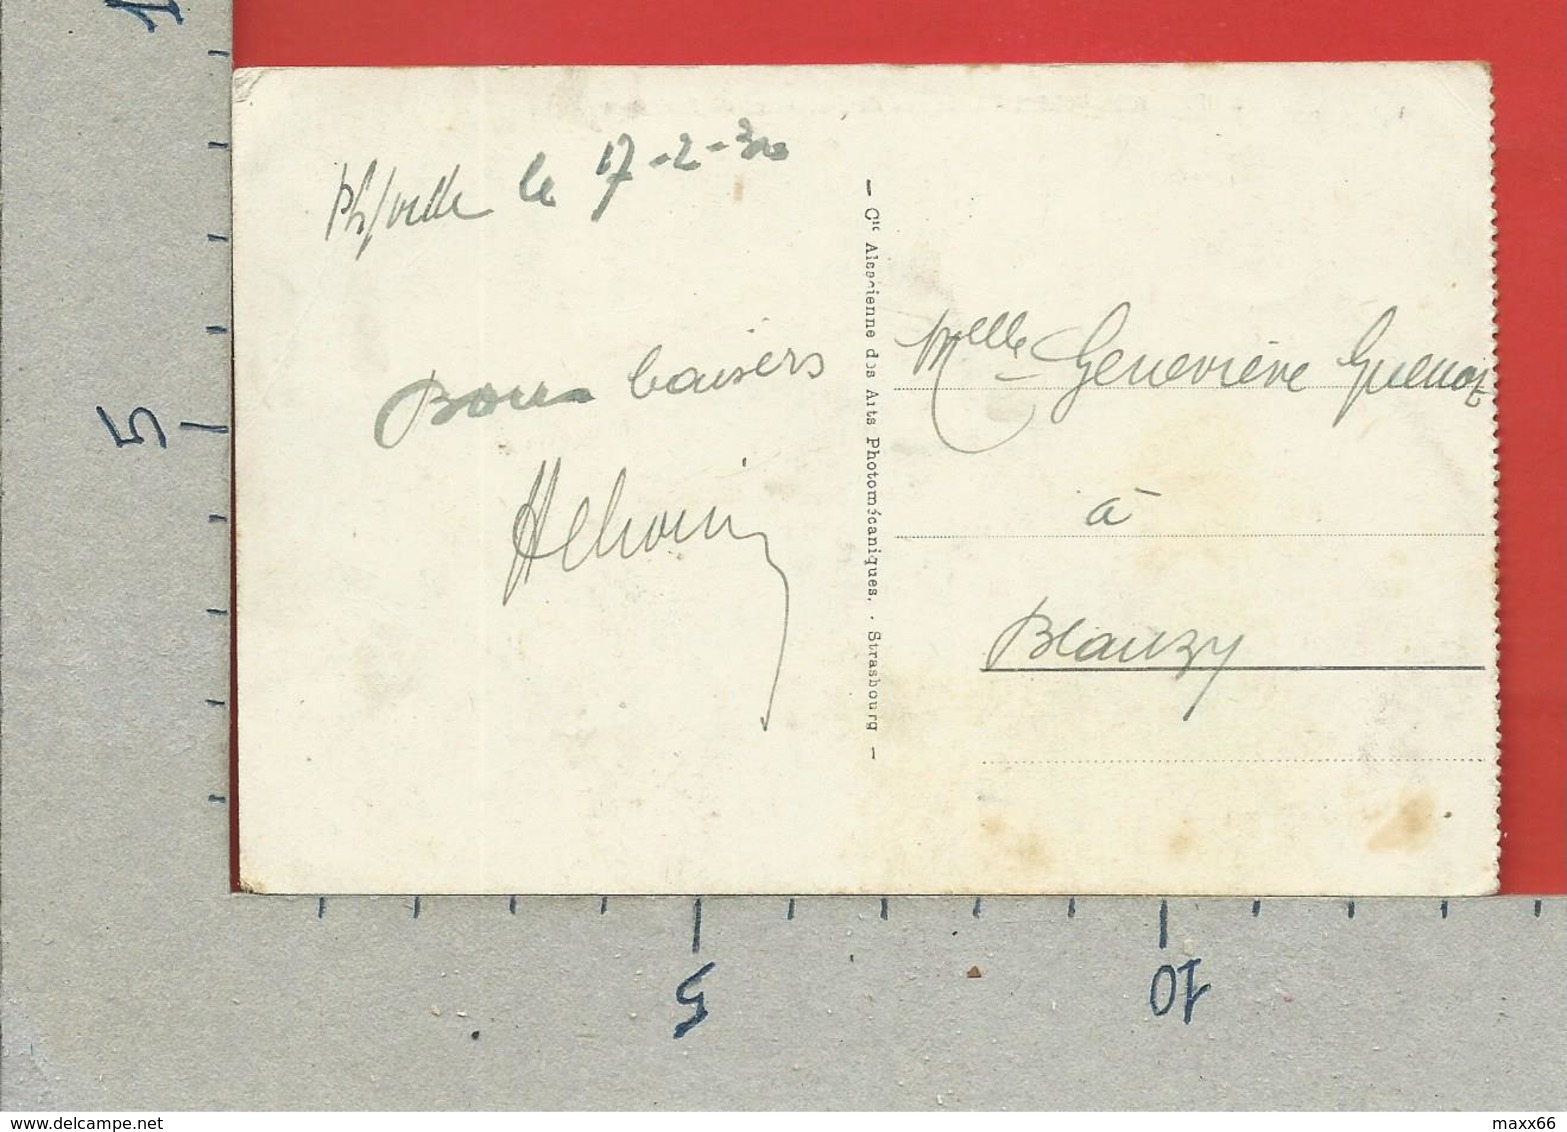 Ph/ville le 17-2-30
Bons baisers
— Cie Alsacienne des Arts Photomécaniques. · Strasbourg —
Melle Geneviève Guenot
à
Blanzy
1
5
5
10
delcampe.net
maxx66